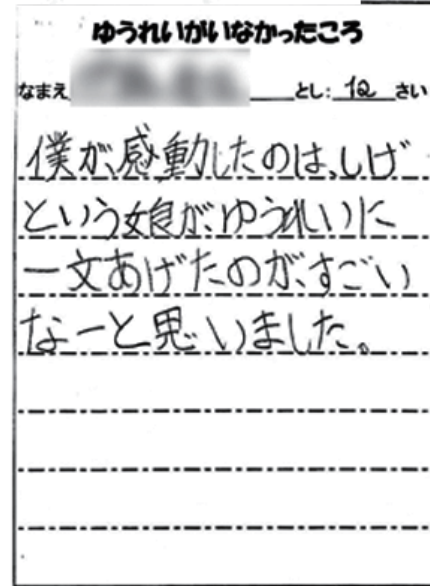 ゆうれいがいなかったころ
なまえ とし:12さい
僕が、感動したのは、しげ
という娘が、ゆうれいに
一文あげたのが、すごい
なーと思いました。